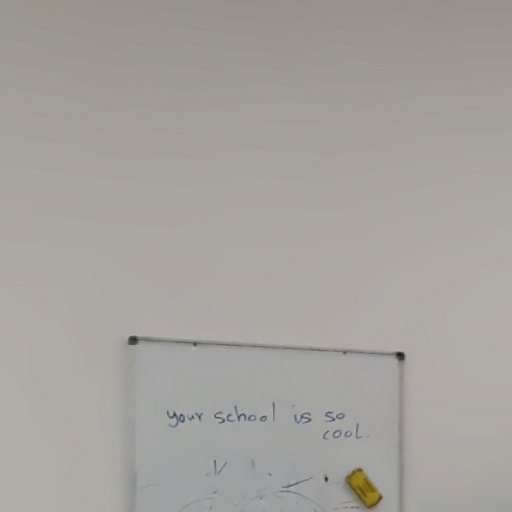 your school is so
cool.